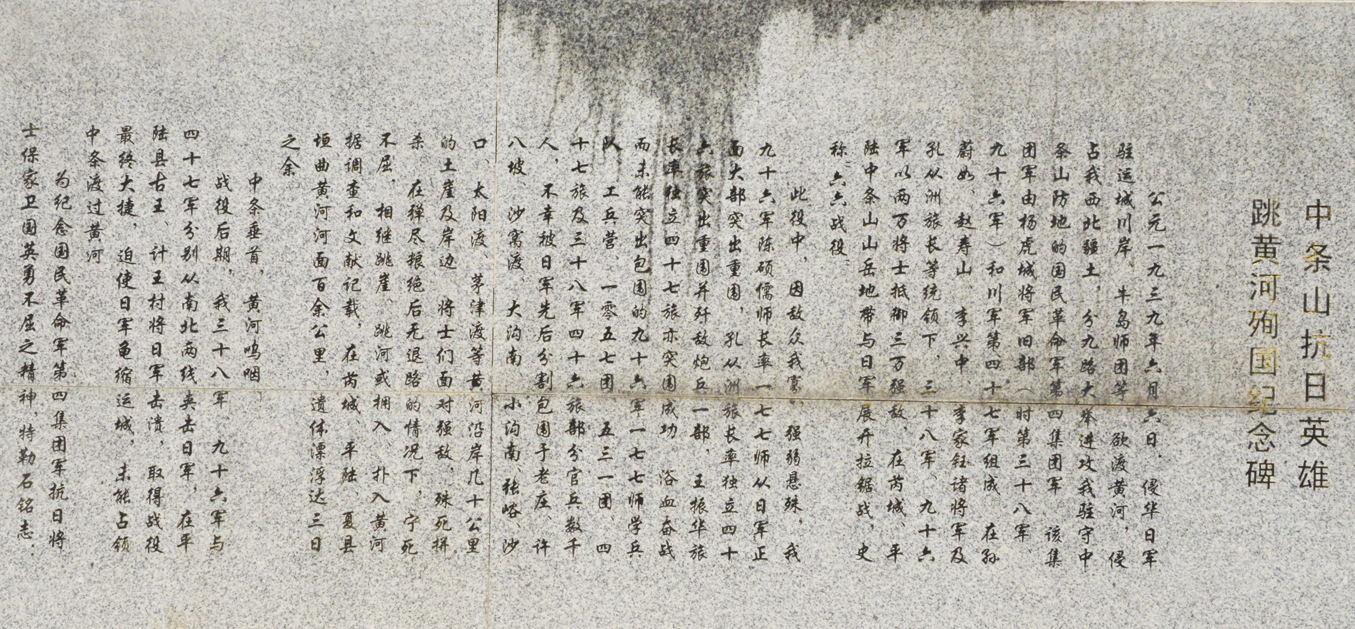 中条山抗日英雄
跳黄河殉国纪念碑
公元一九三九年六月六日，侵华日军
驻运城川岸、牛岛师团等，欲渡黄河，侵
占我西北疆土，分九路大举进攻我驻守中
条山防地的国民革命军第四集团军，该集
团军由杨虎城将军旧部（时第三十八军、
九十六军）和川军第四十七军组成，在孙
蔚如、赵寿山、李兴中、李家钰诸将军及
孔从洲旅长等统领下，三十八军、九十六
军以两万将士抵御三万强敌，在芮城、平
陆中条山山岳地带与日军展开拉锯战，史
称六六战役
此役中，因敌众我寡，强弱悬殊，我
九十六军陈硕儒师长率一七七师从日军正
面大部突出重围，孔从洲旅长率独立四十
六旅突出重围并歼敌炮兵一部，王振华旅
长率独立四十七旅亦突围成功，浴血奋战
而未能突出包围的九十六军一七七师学兵
队、工兵营、一零五七团、五三一团、四
十七旅及三十八军四十六旅部分官兵数千
人，不幸被日军先后分割包围于老庄、许
八坡、沙窝渡、大沟南、小沟南、张峪、沙
口、太阳渡、茅津渡等黄河沿岸几十公里
的土崖及岸边，将士们面对强敌，殊死拼
杀，在弹尽粮绝后无退路的情况下，宁死
不屈，相继跳崖、跳河或拥入、扑入黄河
据调查和文献记载，在芮城、平陆、夏县
垣曲黄河河面百余公里，遗体漂浮达三日
之余
中条垂首，黄河呜咽
战役后期，我三十八军、九十六军与
四十七军分别从南北两线夹击日军，在平
陆县古王、计王村将日军击溃，取得战役
最终大捷，迫使日军龟缩运城，未能占领
中条渡过黄河
为纪念国民革命军第四集团军抗日将
士保家卫国英勇不屈之精神，特勒石铭志。